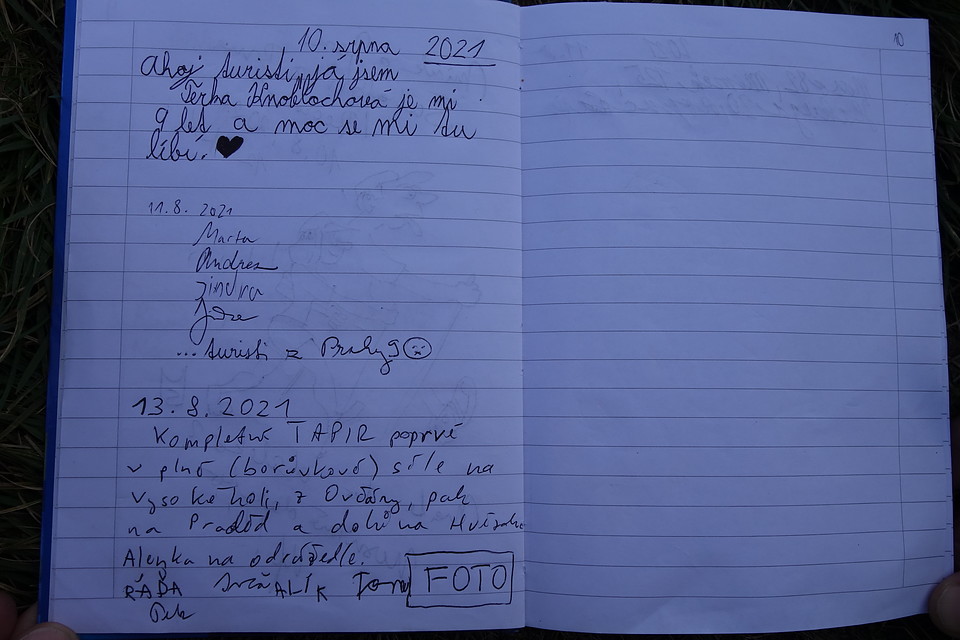 10. srpna 2021
Ahoj turisti, já jsem
Terka Knoblochová je mi
9 let a moc se mi tu
líbí. ♥
11.8. 2021
Marta
Andrea
Jindra
... turisti z Prahy 9 ☹
13.8.2021
Kompletní TAPIR poprvé
v plné (borůvkové) síle na
Vysoké holi, z Ovčárny, pak
na Praděd a dolů na
Alenka na odrážedle.
RÁĎA
FOTO
10